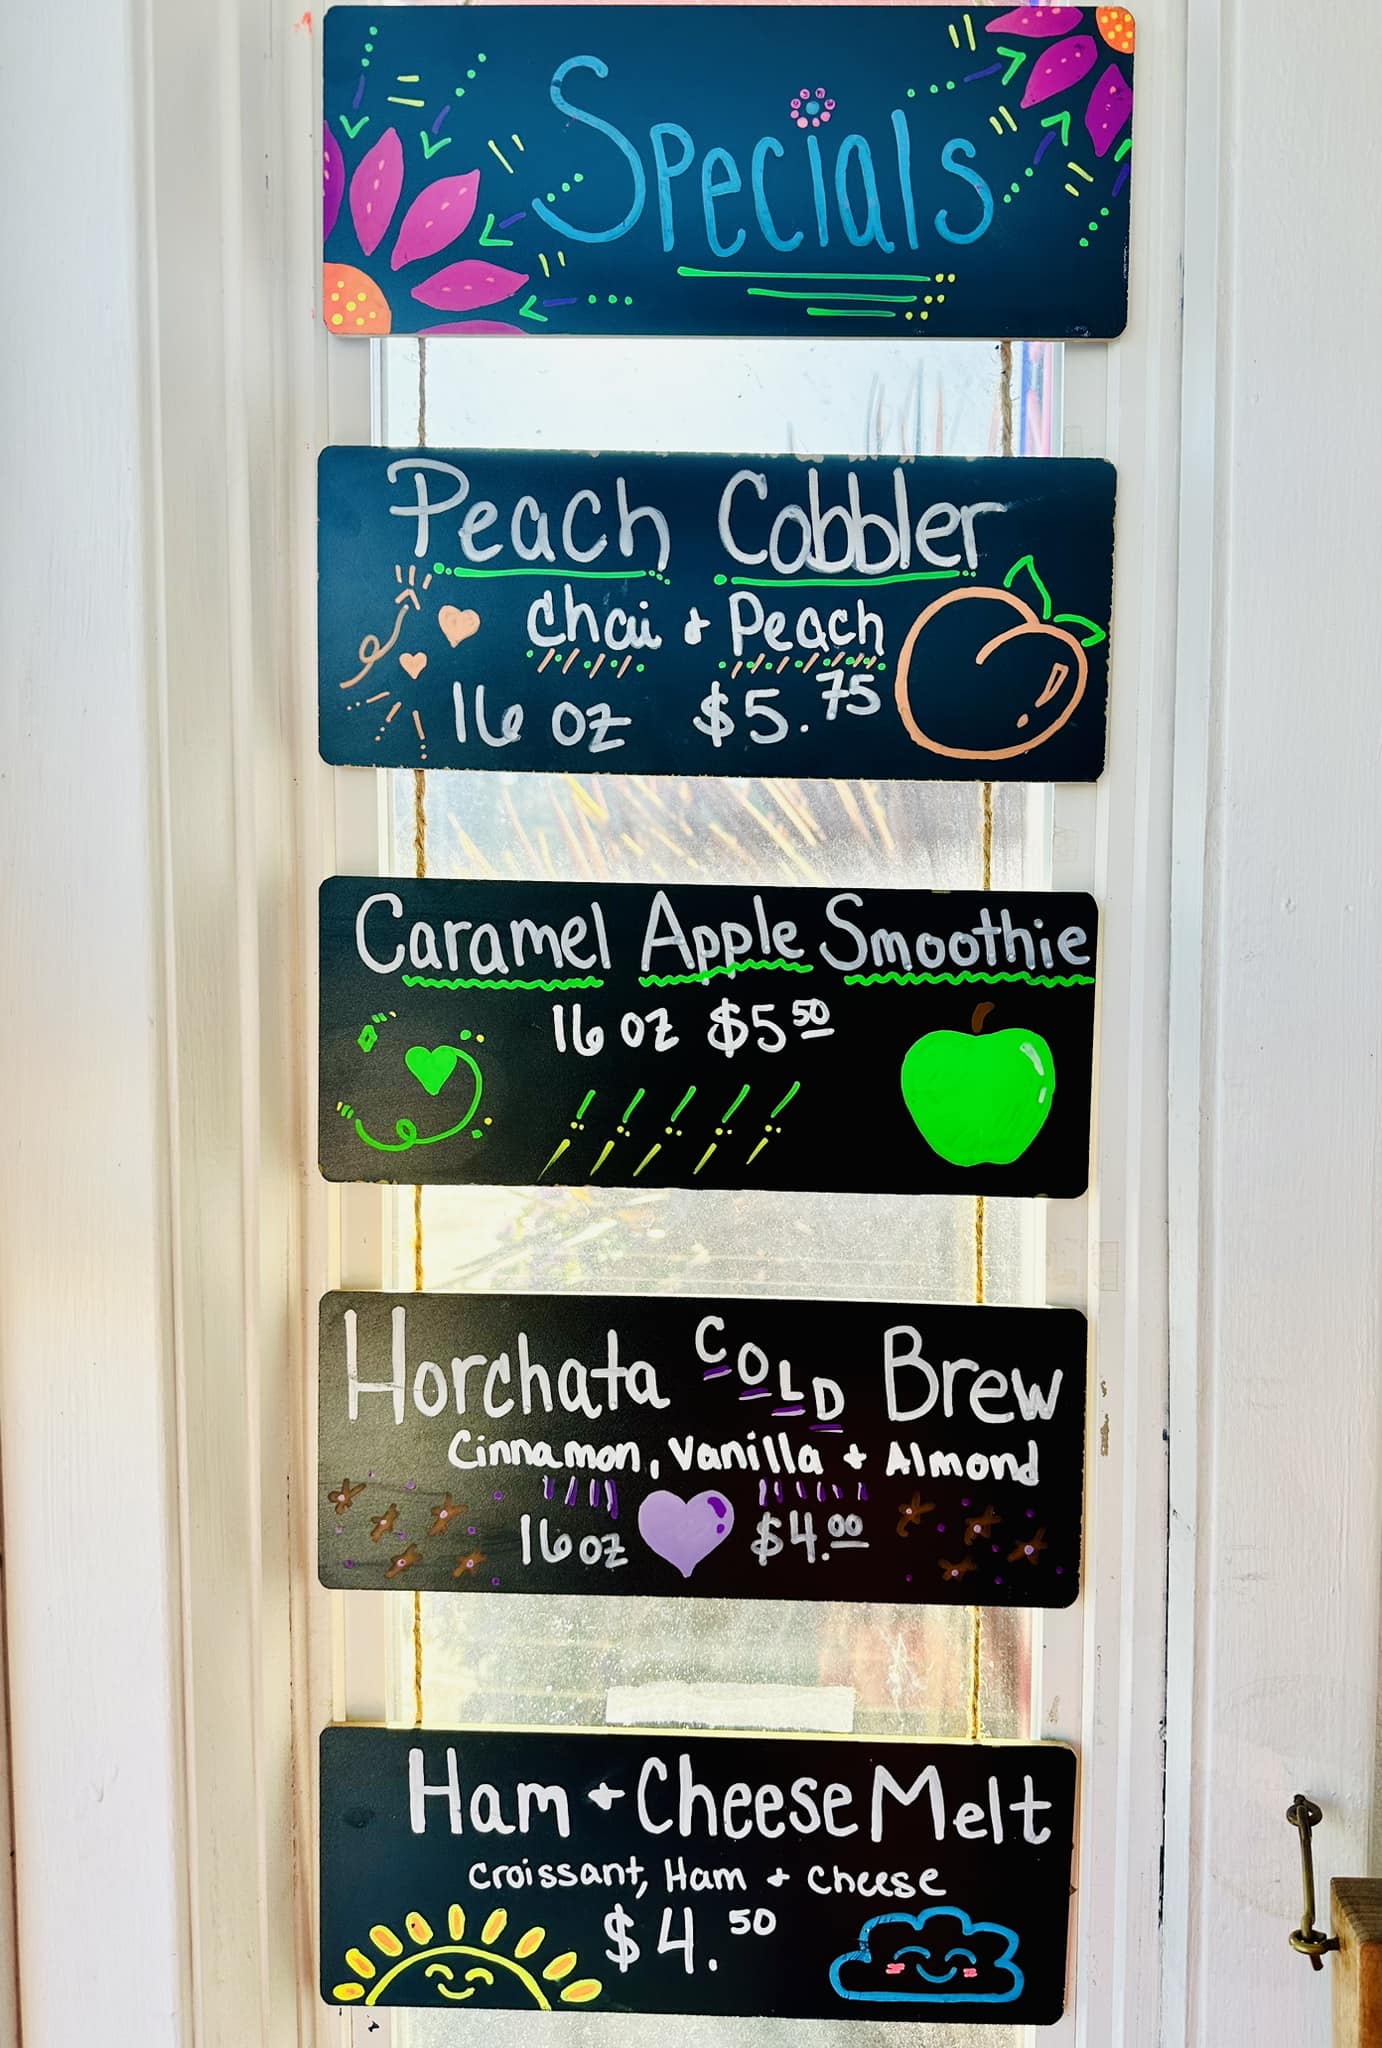 Specials
Peach Cobbler
Chai + Peach
16 oz $5.75
Caramel Apple Smoothie
16 oz $5 50
Horchata COLD Brew
Cinnamon, Vanilla + Almond
16 oz $4.00
Ham + Cheese Melt
Croissant, Ham + Cheese
$4.50